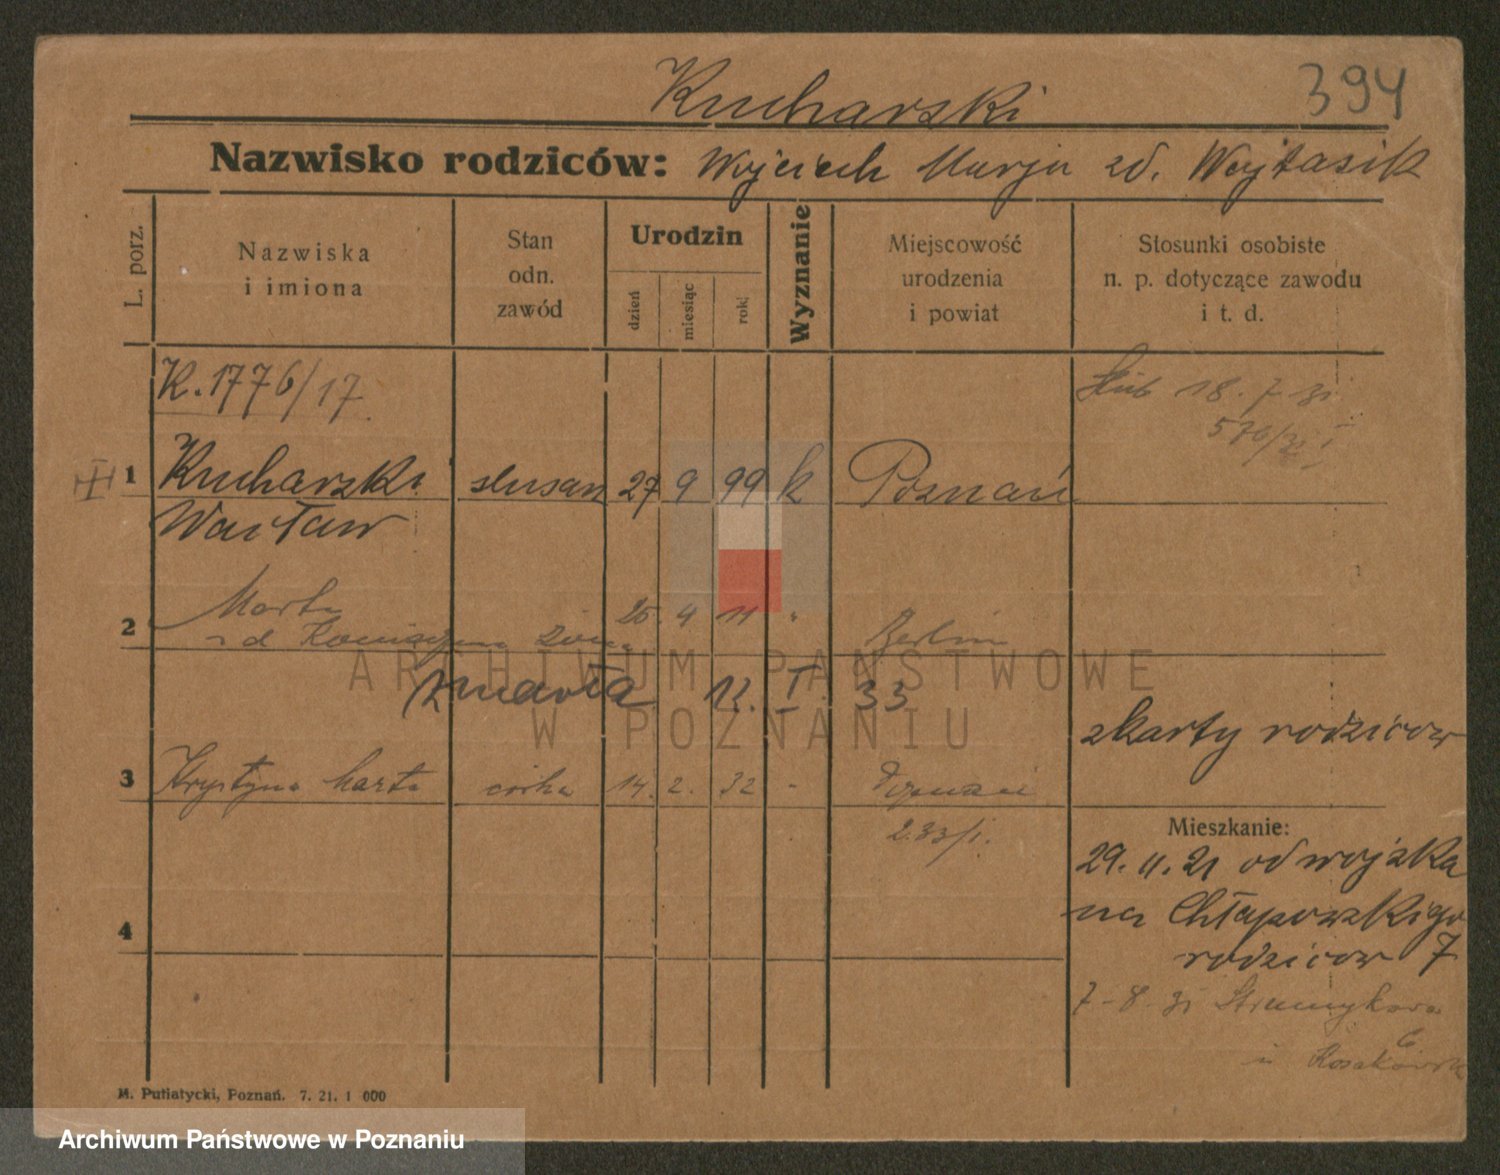 Kucharski
394
Nazwisko rodziców: Wojciech Marja zd. Wojtasik
L. porz.
Nazwiska
i imiona
Stan
odn.
zawód
Urodzin
dzień
miesiąc
rok
Wyznanie
Miejscowość
urodzenia
i powiat
Stosunki osobiste
n. p. dotyczące zawodu
i t. d.
K. 1776/17
ślub 18. 7 31
576/31 I
1 Kucharski ślusarz 27 9 99 k Poznań
Wacław
2 Marta 25. 4 11 " Berlin
zd żona
zmarła 12. I. 33
z karty rodziców
3 Krystyna Marta córka 14. 2. 32 " Poznań
2.33/I.
Mieszkanie:
29. 11. 21 od wojska
na Chłapowskiego
rodziców 7
4
7-8. 31 Strumykowa
6
u
M. Putiatycki, Poznań. 7. 21. 1 000
ARCHIWUM PAŃSTWOWE
W POZNANIU
Archiwum Państwowe w Poznaniu